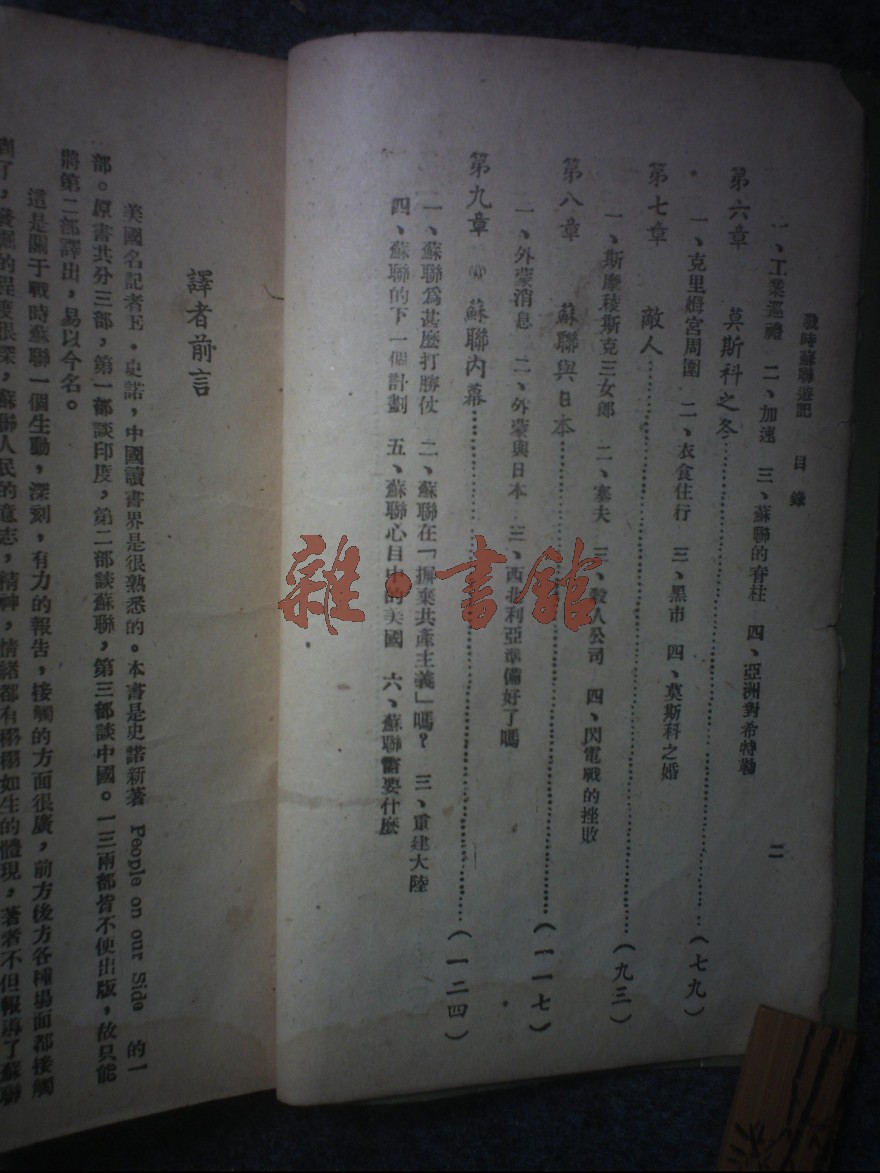 戰時蘇聯遊記　目錄　二
一、工業巡禮　二、加速　三、蘇聯的脊柱　四、亞洲對希特勒
第六章　莫斯科之冬……（七九）
一、克里姆宮周圍　二、衣食住行　三、黑市　四、莫斯科之婚
第七章　敵人……（九三）
一、斯摩稜斯克三女郎　二、塞夫　三、殺人公司　四、閃電戰的挫敗
第八章　蘇聯與日本……（一一七）
一、外蒙消息　二、外蒙與日本　三、西北利亞準備好了嗎
第九章　蘇聯內幕……（一二四）
一、蘇聯爲甚麼打勝仗　二、蘇聯在「摒棄共產主義」嗎？　三、重建大陸
四、蘇聯的下一個計劃　五、蘇聯心目中的美國　六、蘇聯需要什麼
譯者前言
美國名記者E．史諾，中國讀書界是很熟悉的。本書是史諾新著 People on our Side 的一
部。原書共分三部，第一部談印度，第二部談蘇聯，第三部談中國。一三兩部皆不便出版，故只能
將第二部譯出，易以今名。
這是關于戰時蘇聯一個生動，深刻，有力的報告，接觸的方面很廣，前方後方各種場面都接觸
到了，發掘的程度很深，蘇聯人民的意志，精神，情緒都有栩栩如生的體現，著者不但報導了蘇聯
雜·書館